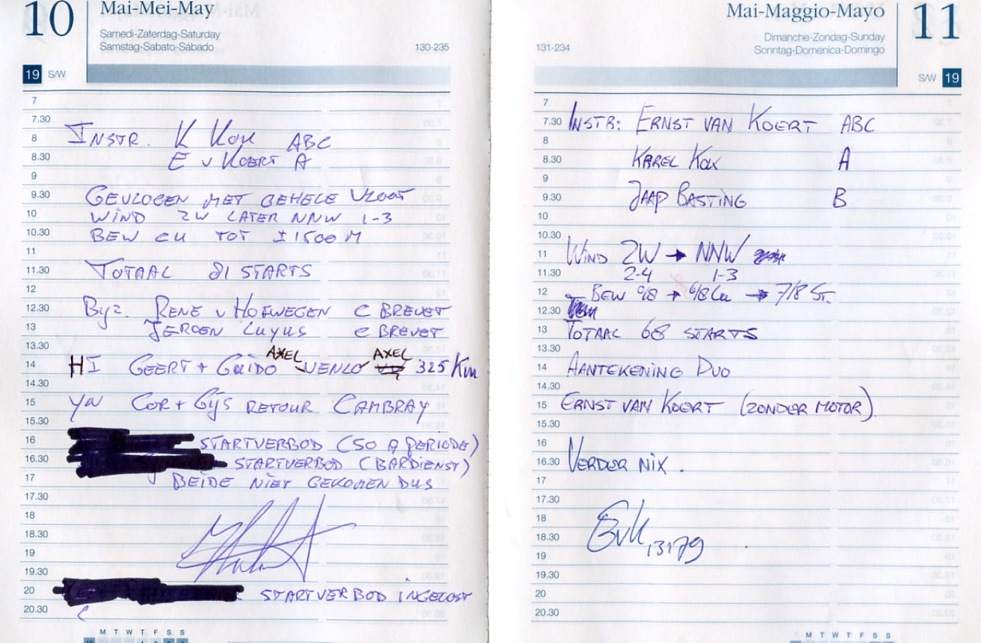 10
Mai-Mei-May
Samedi-Zaterdag-Saturday
Samstag-Sabato-Sábado
130-235
19 S/W
7
7.30
8 INSTR. K KOX ABC
8.30 E v KOERT A
9
9.30 GEVLOGEN MET GEHELE VLOOT
10 WIND ZW LATER NNW 1-3
10.30 BEW CU TOT ±1500 M
11
11.30 TOTAAL 81 STARTS
12
12.30 Byz. RENE v HOEWEGEN C BREVET
13 JEROEN LUYUS C BREVET
13.30 AXEL AXEL
14 HI GEERT + GUIDO VENLO 325 Km
14.30
15 YW COR + Gijs RETOUR CAMBRAY
15.30
16 STARTVERBOD (50 A PERIODE)
16.30 STARTVERBOD (BARDIENST)
17 BEIDE NIET GEKOMEN DUS
17.30
18
18.30
19
19.30
20 STARTVERBOD INGELOST
20.30
M T W T F S S
Mai-Maggio-Mayo
11
Dimanche-Zondag-Sunday
Sonntag-Domenica-Domingo
131-234
S/W 19
7
7.30 INSTR: ERNST VAN KOERT ABC
8
8.30 KAREL KOX A
9
9.30 JAAP BASTING B
10
10.30
11 WIND ZW → NNW
11.30 2-4 1-3
12 BEW 0/8 → 6/8 Cu → 7/8 St.
12.30
13 TOTAAL 68 STARTS
13.30
14 AANTEKENING DUO
14.30
15 ERNST VAN KOERT (ZONDER MOTOR)
15.30
16
16.30 VERDER NIX.
17
17.30
18 EvK
18.30 13179
19
19.30
20
20.30
M T W T F S S